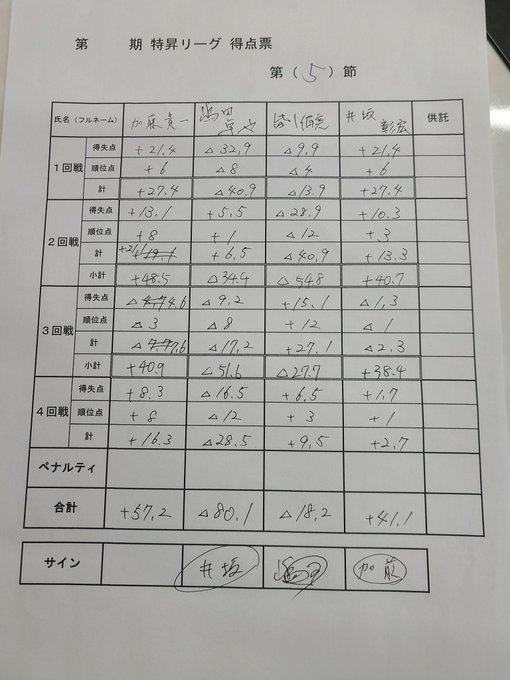 第 期 特昇リーグ 得点票
第(5)節
氏名(フルネーム) 加藤貴一 嶋田 井坂彰宏 供託
1回戦 得失点 +21.4 △32.9 △9.9 +21.4
順位点 +6 △8 △4 +6
計 +27.4 △40.9 △13.9 +27.4
2回戦 得失点 +13.1 +5.5 △28.9 +10.3
順位点 +8 +1 △12 +3
計 +21.1 +6.5 △40.9 +13.3
小計 +48.5 △34.4 △54.8 +40.7
3回戦 得失点 △4.6 △9.2 +15.1 △1.3
順位点 △3 △8 +12 △1
計 △7.6 △17.2 +27.1 △2.3
小計 +40.9 △51.6 △27.7 +38.4
4回戦 得失点 +8.3 △16.5 +6.5 +1.7
順位点 +8 △12 +3 +1
計 +16.3 △28.5 +9.5 +2.7
ペナルティ
合計 +57.2 △80.1 △18.2 +41.1
サイン 井坂 加藤